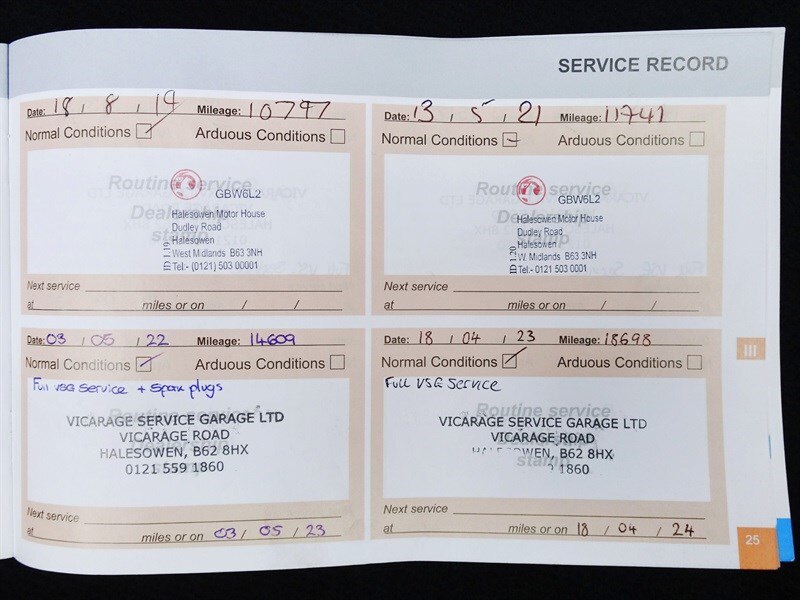 SERVICE RECORD
Date: 18 / 8 / 19 Mileage: 10797
Normal Conditions Arduous Conditions
Routine service
Dealership
stamp
GBW6L2
Halesowen Motor House
Dudley Road
Halesowen
West Midlands B63 3NH
Tel:- (0121) 503 00001
ID 1.19
Next service
at miles or on / /
Date: 13 / 5 / 21 Mileage: 11741
Normal Conditions Arduous Conditions
Routine service
Dealership
stamp
GBW6L2
Halesowen Motor House
Dudley Road
Halesowen
W. Midlands B63 3NH
Tel:- 0121 503 0001
ID 1.20
Next service
at miles or on / /
Date: 03 / 05 / 22 Mileage: 14609
Normal Conditions Arduous Conditions
Full VSG Service + Spark plugs
Routine service
VICARAGE SERVICE GARAGE LTD
VICARAGE ROAD
HALESOWEN, B62 8HX
0121 559 1860
Next service
at miles or on 03 / 05 / 23
Date: 18 / 04 / 23 Mileage: 18698
Normal Conditions Arduous Conditions
Full VSG Service
Routine service
VICARAGE SERVICE GARAGE LTD
VICARAGE ROAD
B62 8HX
stamp
1860
Next service
at miles or on 18 / 04 / 24
III
25